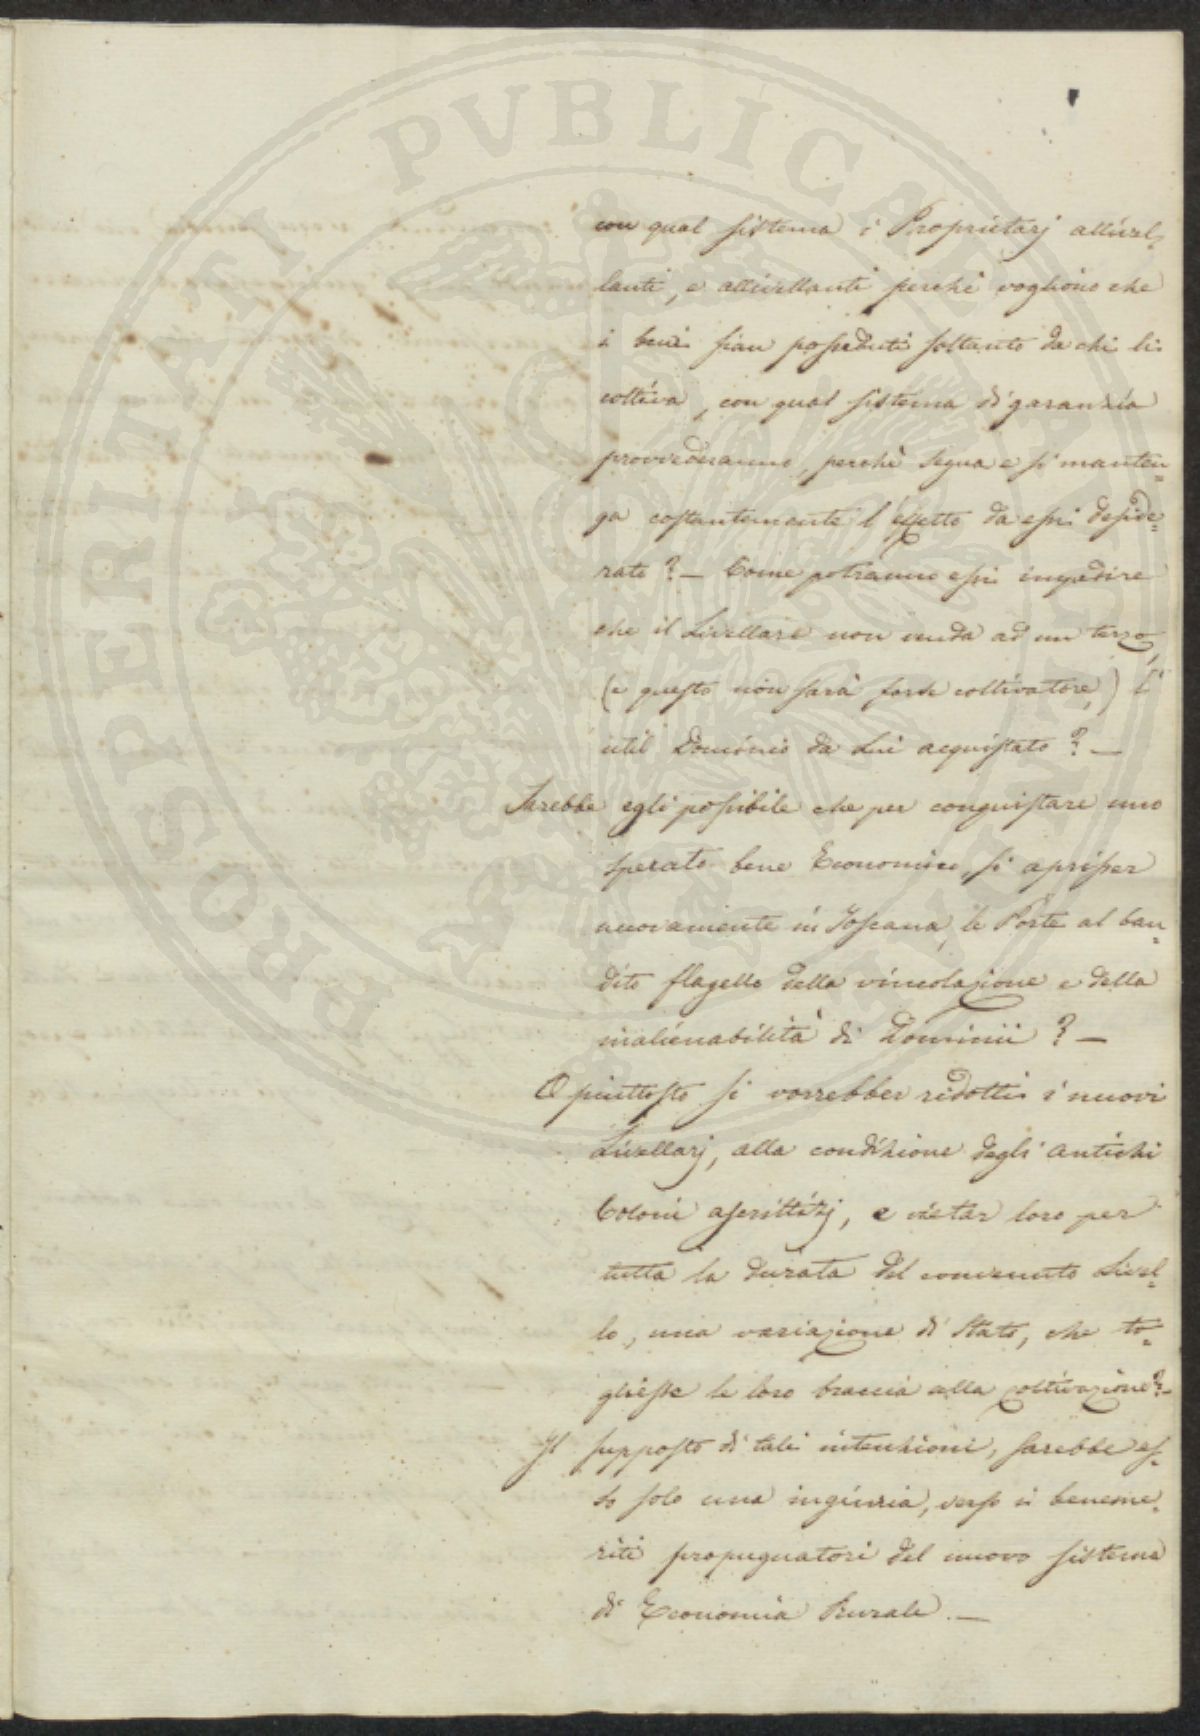 PROSPERITATI PVBLICAE AVGENDAE
con qual sistema i Proprietarj allivel=
lanti, e allivellanti perchè vogliono che
i beni sian posseduti soltanto da chi li
coltiva, con qual sistema di garanzia
provvederanno, perchè segua e si manten=
ga costantemente l'effetto da essi deside=
rato? — Come potranno essi impedire
che il Livellare non venda ad un terzo,
(e questo non sarà forse coltivatore,) l'
util Dominio da Lui acquistato? —
Sarebbe egli possibile che per conquistare uno
sperato bene Economico, si aprisser
nuovamente in Toscana, le Porte al ban=
dito flagello della vincolazione e della
inalienabilità di Dominii? —
O piuttosto si vorrebber ridotti i nuovi
Livellarj, alla condizione degli antichi
Coloni ascrittizj, e vietar loro per
tutta la durata del convenuto Livel=
lo, una variazione di Stato, che to=
gliesse le loro braccia alla coltivazione? —
Il supposto di tali intenzioni, sarebbe es=
so solo una ingiuria, verso i beneme=
riti propugnatori del nuovo sistema
di Economia Rurale. —